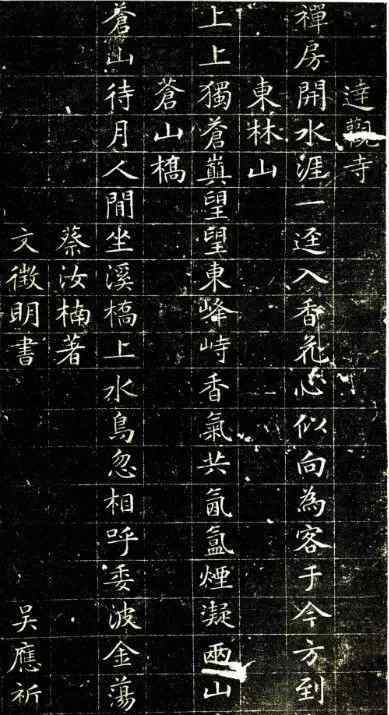 達觀寺
禪房開水涯一逕入香花心似向為客于今方到
東林山
上上獨蒼巔望望東峰峙香氣共氤氳煙凝兩山
蒼山橋
蒼山待月人閒坐溪橋上水鳥忽相呼委波金蕩
蔡汝楠著
文徵明書 吳應祈